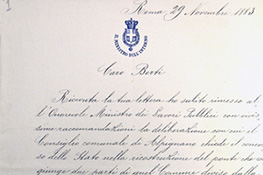 Roma, 29 Novembre 1883
IL MINISTRO DELL'INTERNO
Caro Berti
Ricevuta la tua lettera ho subito rimesso al
l'Onorevole Ministro dei Lavori Pubblici con vivis
sime raccomandazioni la deliberazione con cui il
Consiglio comunale di Alpignano chiede il concor
so dello Stato nella ricostruzione del ponte che con
giunge due parti di quel Comune divise dalla